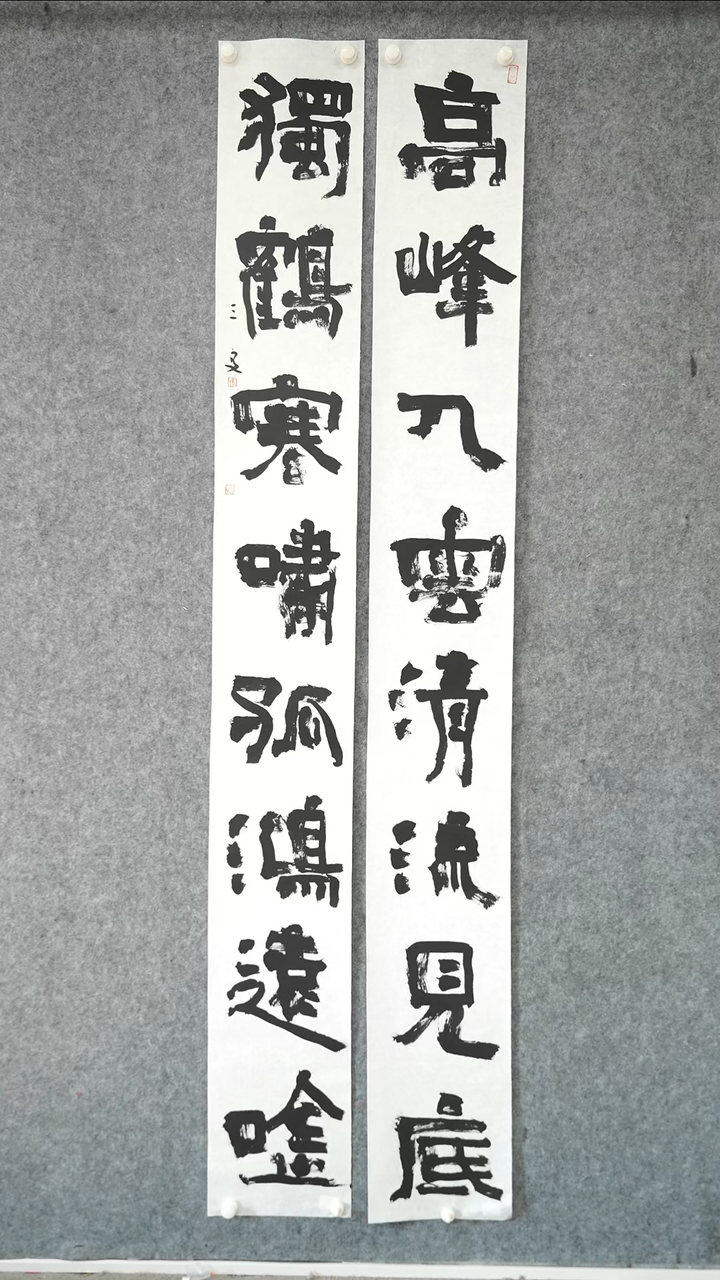 高峰入雲清流見底
獨鶴寒嘯孤鴻遠唫